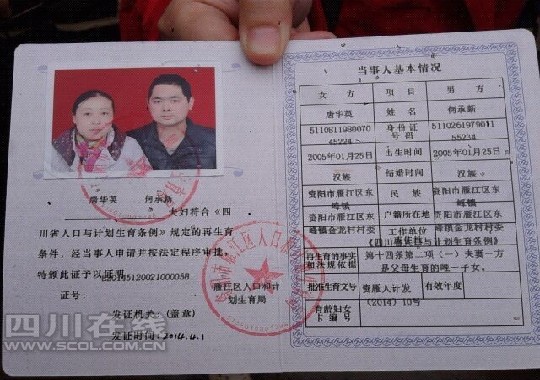 唐华英 何承新
夫妇符合《四
川省人口与计划生育条例》规定的再生育
条件,经当事人申请并按法定程序审批。
特发此证予以证明
证号:
雁江区人口和计
划生育局
发证机关:(盖章)
发证时间:2014.4.1
当事人基本情况
女方 项目 男方
唐华英 姓名 何承新
身份证号码
2005年01月25日 出生时间 2005年01月25日
汉族 结婚时间 汉族
资阳市雁江区东峰镇 民族 资阳市雁江区东峰镇
资阳市雁江区东 户籍所在地 资阳市雁江区东
峰镇金龙村村委 工作单位 峰镇金龙村村委
再生育的事实和法规依据
第十四条第二项(一)夫妻一方
是父母生育的唯一子女。
批准生育文号 资雁人计发 有效年度
(2014)10号
育龄妇女卡编号
四川在线
WWW.SCOL.COM.CN